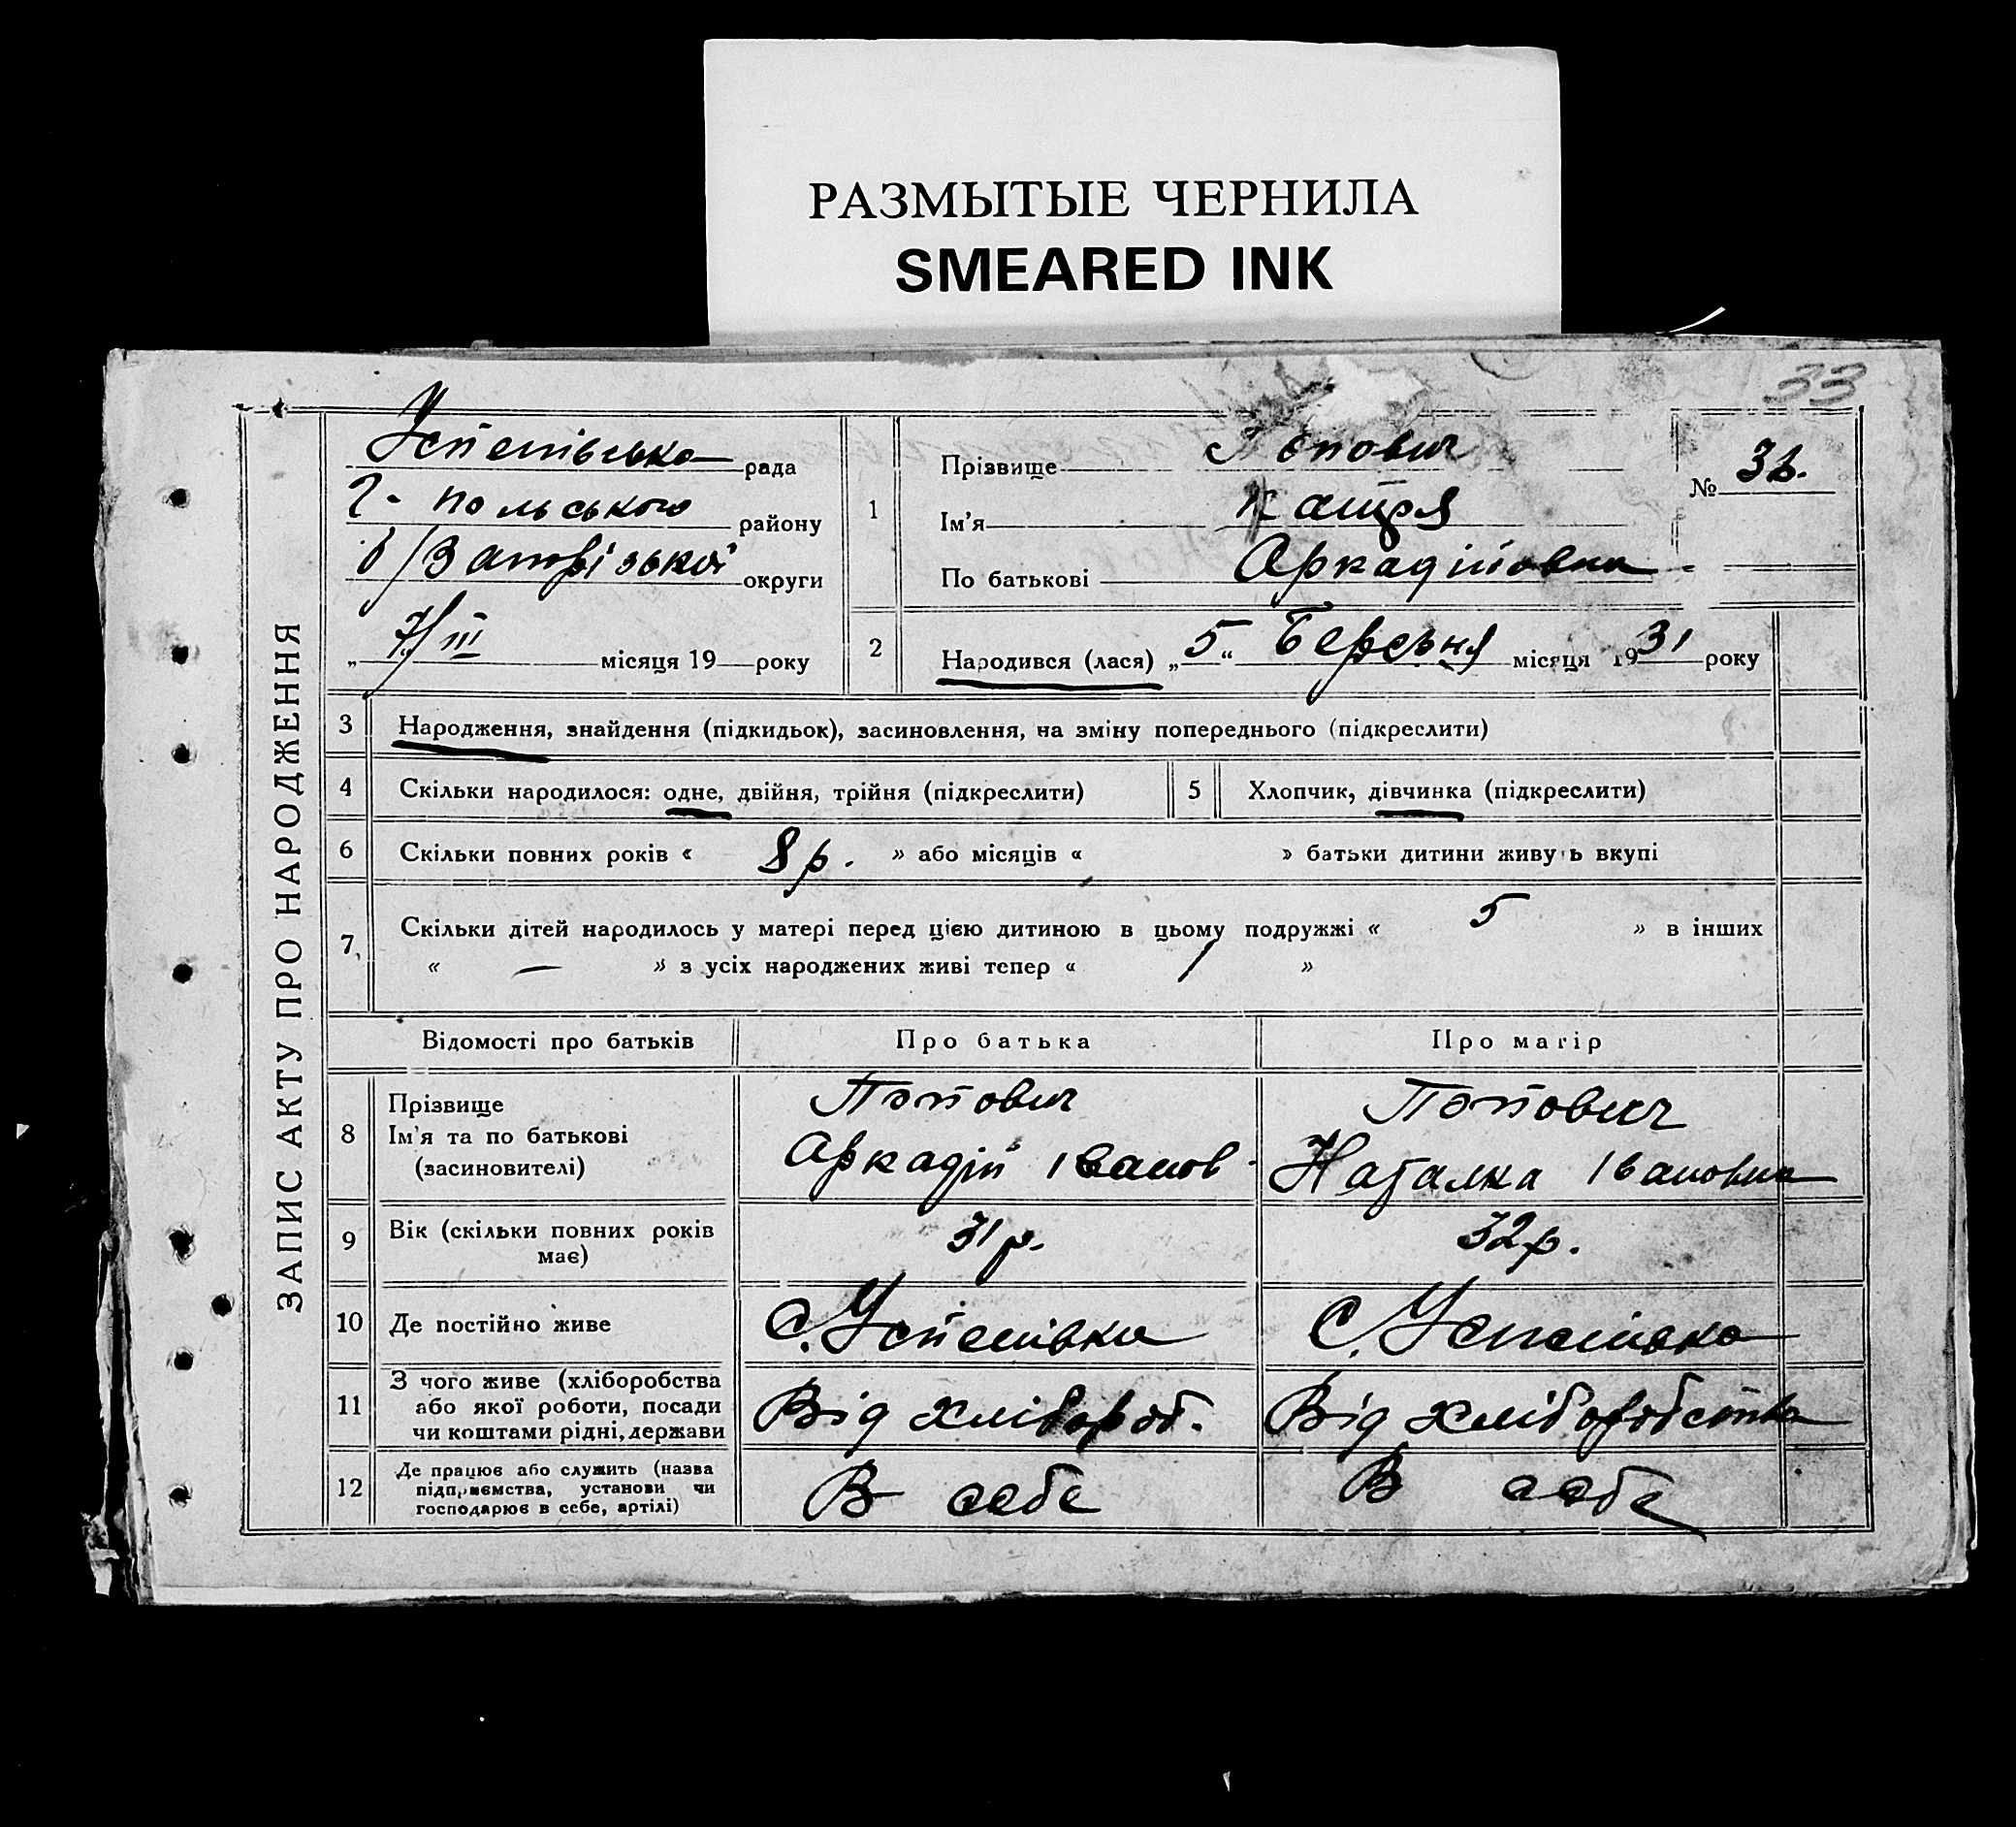 РАЗМЫТЫЕ ЧЕРНИЛА
SMEARED INK
33
ЗАПИС АКТУ ПРО НАРОДЖЕННЯ
Успенівська рада
Г-Польського району
б/Запорізької округи
„ 7/III місяця 19 року
1
Прізвище Попович
Ім'я Катря
По батькові Аркадійовна
№ 32.
2
Народився (лася) „ 5 “ Березня місяця 1931 року
3 Народження, знайдення (підкидьок), засиновлення, на зміну попереднього (підкреслити)
4 Скільки народилося: одне, двійня, трійня (підкреслити)
5 Хлопчик, дівчинка (підкреслити)
6 Скільки повних років « 8 р. » або місяців « » батьки дитини живуть вкупі
7 Скільки дітей народилось у матері перед цією дитиною в цьому подружжі « 5 » в інших
« — » з усіх народжених живі тепер « 1 »
Відомості про батьків
Про батька
Про матір
8 Прізвище
Ім'я та по батькові
(засиновителі)
Попович
Аркадій Іванов
Попович
Наталка Івановна
9 Вік (скільки повних років
має)
31 р.
32 р.
10 Де постійно живе
С. Успенівка
С. Успенівка
11 З чого живе (хліборобства
або якої роботи, посади
чи коштами рідні, держави
Від хлібороб.
Від хліборобства
12 Де працює або служить (назва
підприємства, установи чи
господарює в себе, артілі)
В себе
В себе